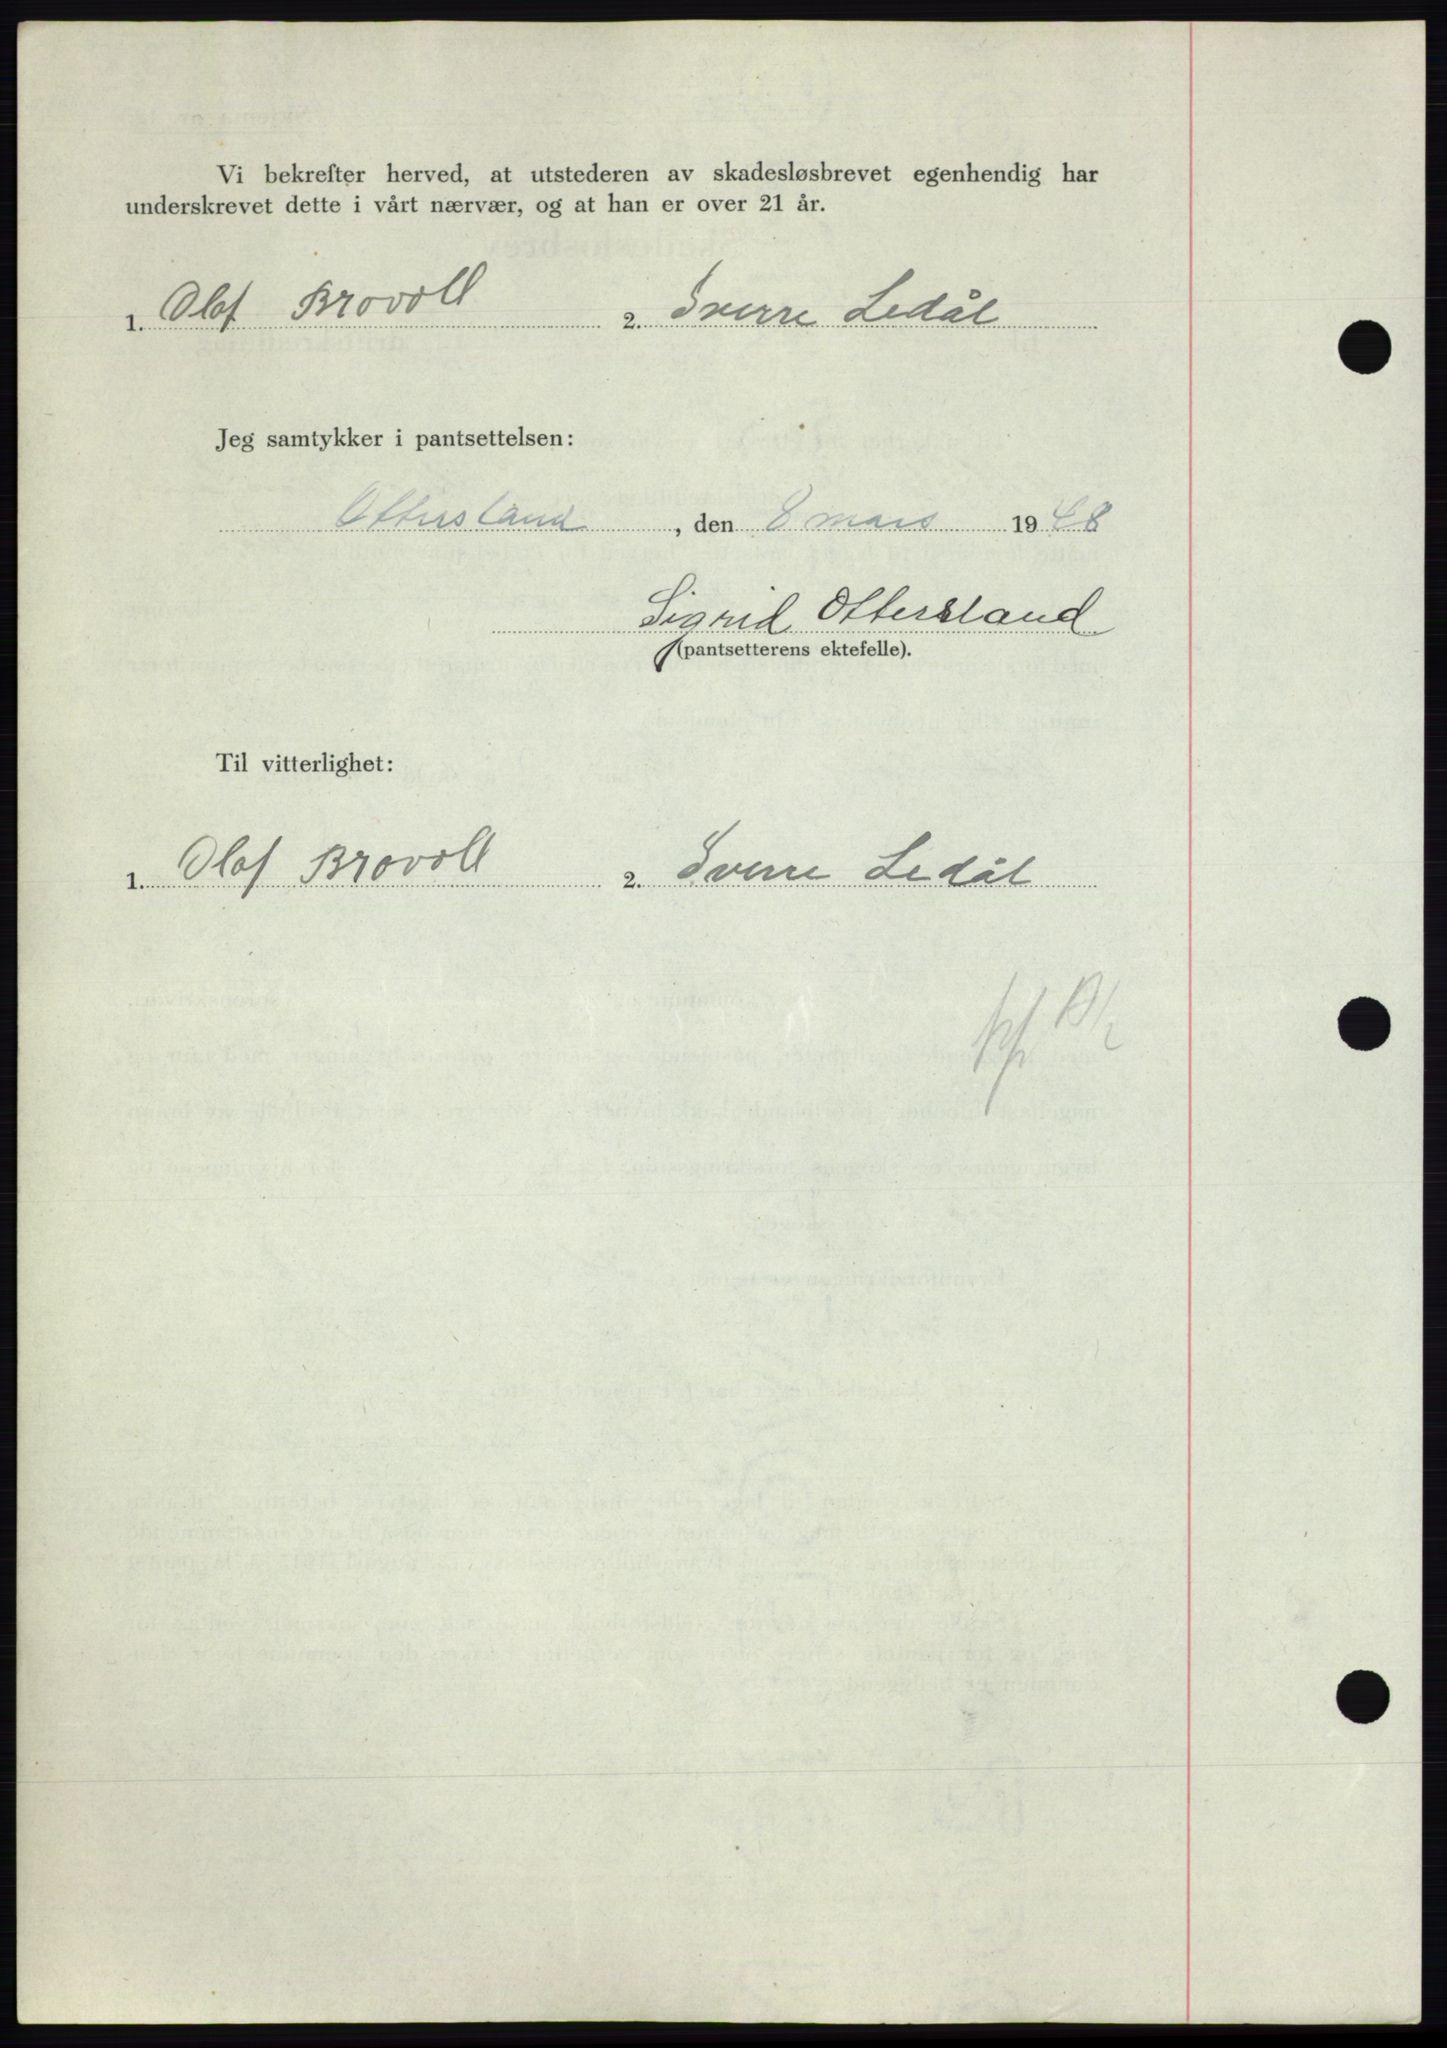 Vi bekrefter herved, at utstederen av skadesløsbrevet egenhendig har
underskrevet dette i vårt nærvær, og at han er over 21 år.
1. Olaf Brovoll 2. Sverre Ledål
Jeg samtykker i pantsettelsen:
Ottersland, den 8 mars 1948
Sigrid Ottersland
(pantsetterens ektefelle).
Til vitterlighet:
1. Olaf Brovoll 2. Sverre Ledål